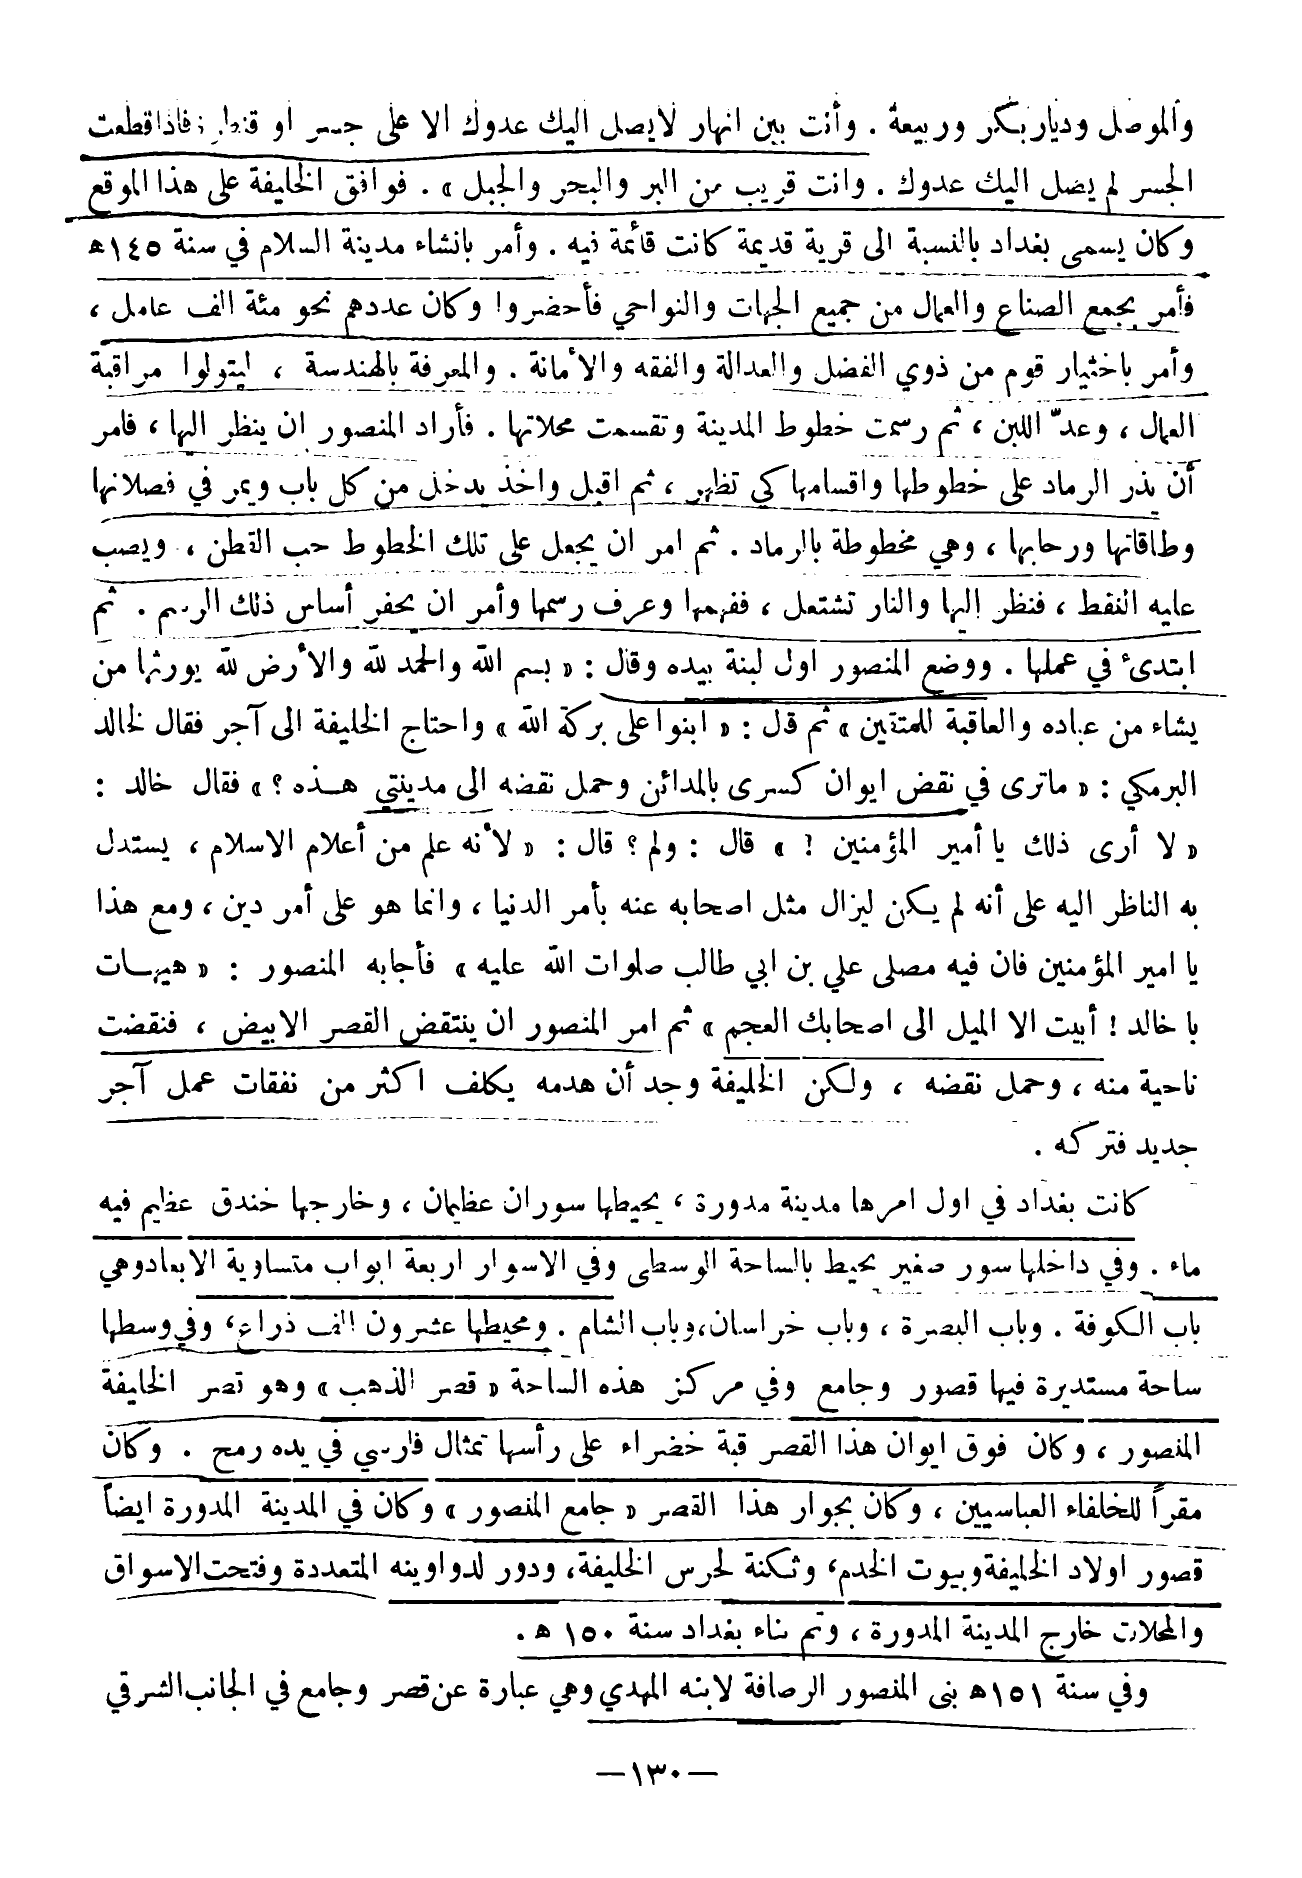 والموصل وديار بكر وربيعة . وأنت بين انهار لايصل اليك عدوك الا على جسر او قنطرة فاذا قطعت
الجسر لم يصل اليك عدوك . وانت قريب من البر والبحر والجبل » . فوافق الخليفة على هذا الموقع
وكان يسمى بغداد بالنسبة الى قرية قديمة كانت قائمة فيه . وأمر بانشاء مدينة السلام في سنة ١٤٥ ه
فأمر بجمع الصناع والعمال من جميع الجهات والنواحي فأحضروا وكان عددهم نحو مئة الف عامل ،
وأمر باختيار قوم من ذوي الفضل والعدالة والفقه والأمانة . والمعرفة بالهندسة ، ليتولوا مراقبة
العمال ، وعدّ اللبن ، ثم رسمت خطوط المدينة وتقسمت محلاتها . فأراد المنصور ان ينظر اليها ، فامر
أن يذر الرماد على خطوطها واقسامها كي تظهر ، ثم اقبل واخذ يدخل من كل باب ويمر في فصلانها
وطاقاتها ورحابها ، وهي مخطوطة بالرماد . ثم امر ان يجعل على تلك الخطوط حب القطن ، ويصب
عليه النفط ، فنظر اليها والنار تشتعل ، ففهمها وعرف رسمها وأمر ان يحفر أساس ذلك الرسم . ثم
ابتدىء في عملها . ووضع المنصور اول لبنة بيده وقال : « بسم الله والحمد لله والأرض لله يورثها من
يشاء من عباده والعاقبة للمتقين » ثم قال : « ابنوا على بركة الله » واحتاج الخليفة الى آجر فقال لخالد
البرمكي : « ماترى في نقض ايوان كسرى بالمدائن وحمل نقضه الى مدينتي هذه ؟ » فقال خالد :
« لا أرى ذلك يا أمير المؤمنين ! » قال : ولم ؟ قال : « لأنه علم من أعلام الاسلام ، يستدل
به الناظر اليه على أنه لم يكن ليزال مثل اصحابه عنه بأمر الدنيا ، وانما هو على أمر دين ، ومع هذا
يا امير المؤمنين فان فيه مصلى علي بن ابي طالب صلوات الله عليه » فأجابه المنصور : « هيهات
يا خالد ! أبيت الا الميل الى اصحابك العجم » ثم امر المنصور ان ينتقض القصر الابيض ، فنقضت
ناحية منه ، وحمل نقضه ، ولكن الخليفة وجد أن هدمه يكلف اكثر من نفقات عمل آجر
جديد فتركه .
كانت بغداد في اول امرها مدينة مدورة ، يحيطها سوران عظيمان ، وخارجها خندق عظيم فيه
ماء . وفي داخلها سور صغير يحيط بالساحة الوسطى وفي الاسوار اربعة ابواب متساوية الابعاد وهي
باب الكوفة . وباب البصرة ، وباب خراسان ، وباب الشام . ومحيطها عشرون الف ذراع ، وفي وسطها
ساحة مستديرة فيها قصور وجامع وفي مركز هذه الساحة « قصر الذهب » وهو قصر الخليفة
المنصور ، وكان فوق ايوان هذا القصر قبة خضراء على رأسها تمثال فارسي في يده رمح . وكان
مقراً للخلفاء العباسيين ، وكان بجوار هذا القصر « جامع المنصور » وكان في المدينة المدورة ايضاً
قصور اولاد الخليفة وبيوت الخدم ، وثكنة لحرس الخليفة ، ودور لدواوينه المتعددة وفتحت الاسواق
والمحلات خارج المدينة المدورة ، وتم بناء بغداد سنة ١٥٠ ه .
وفي سنة ١٥١ ه بنى المنصور الرصافة لابنه المهدي وهي عبارة عن قصر وجامع في الجانب الشرقي
— ١٣٠ —